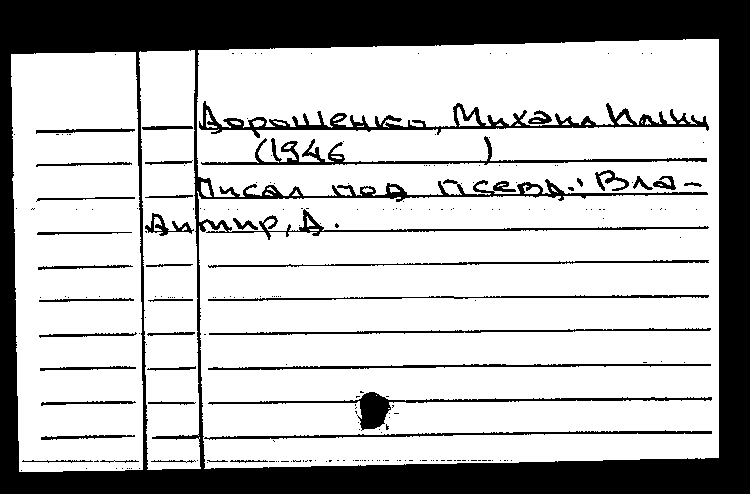 Дорошенко, Михаил Ильич
(1946 )
Писал под псевд.: Вла-
димир, Д.